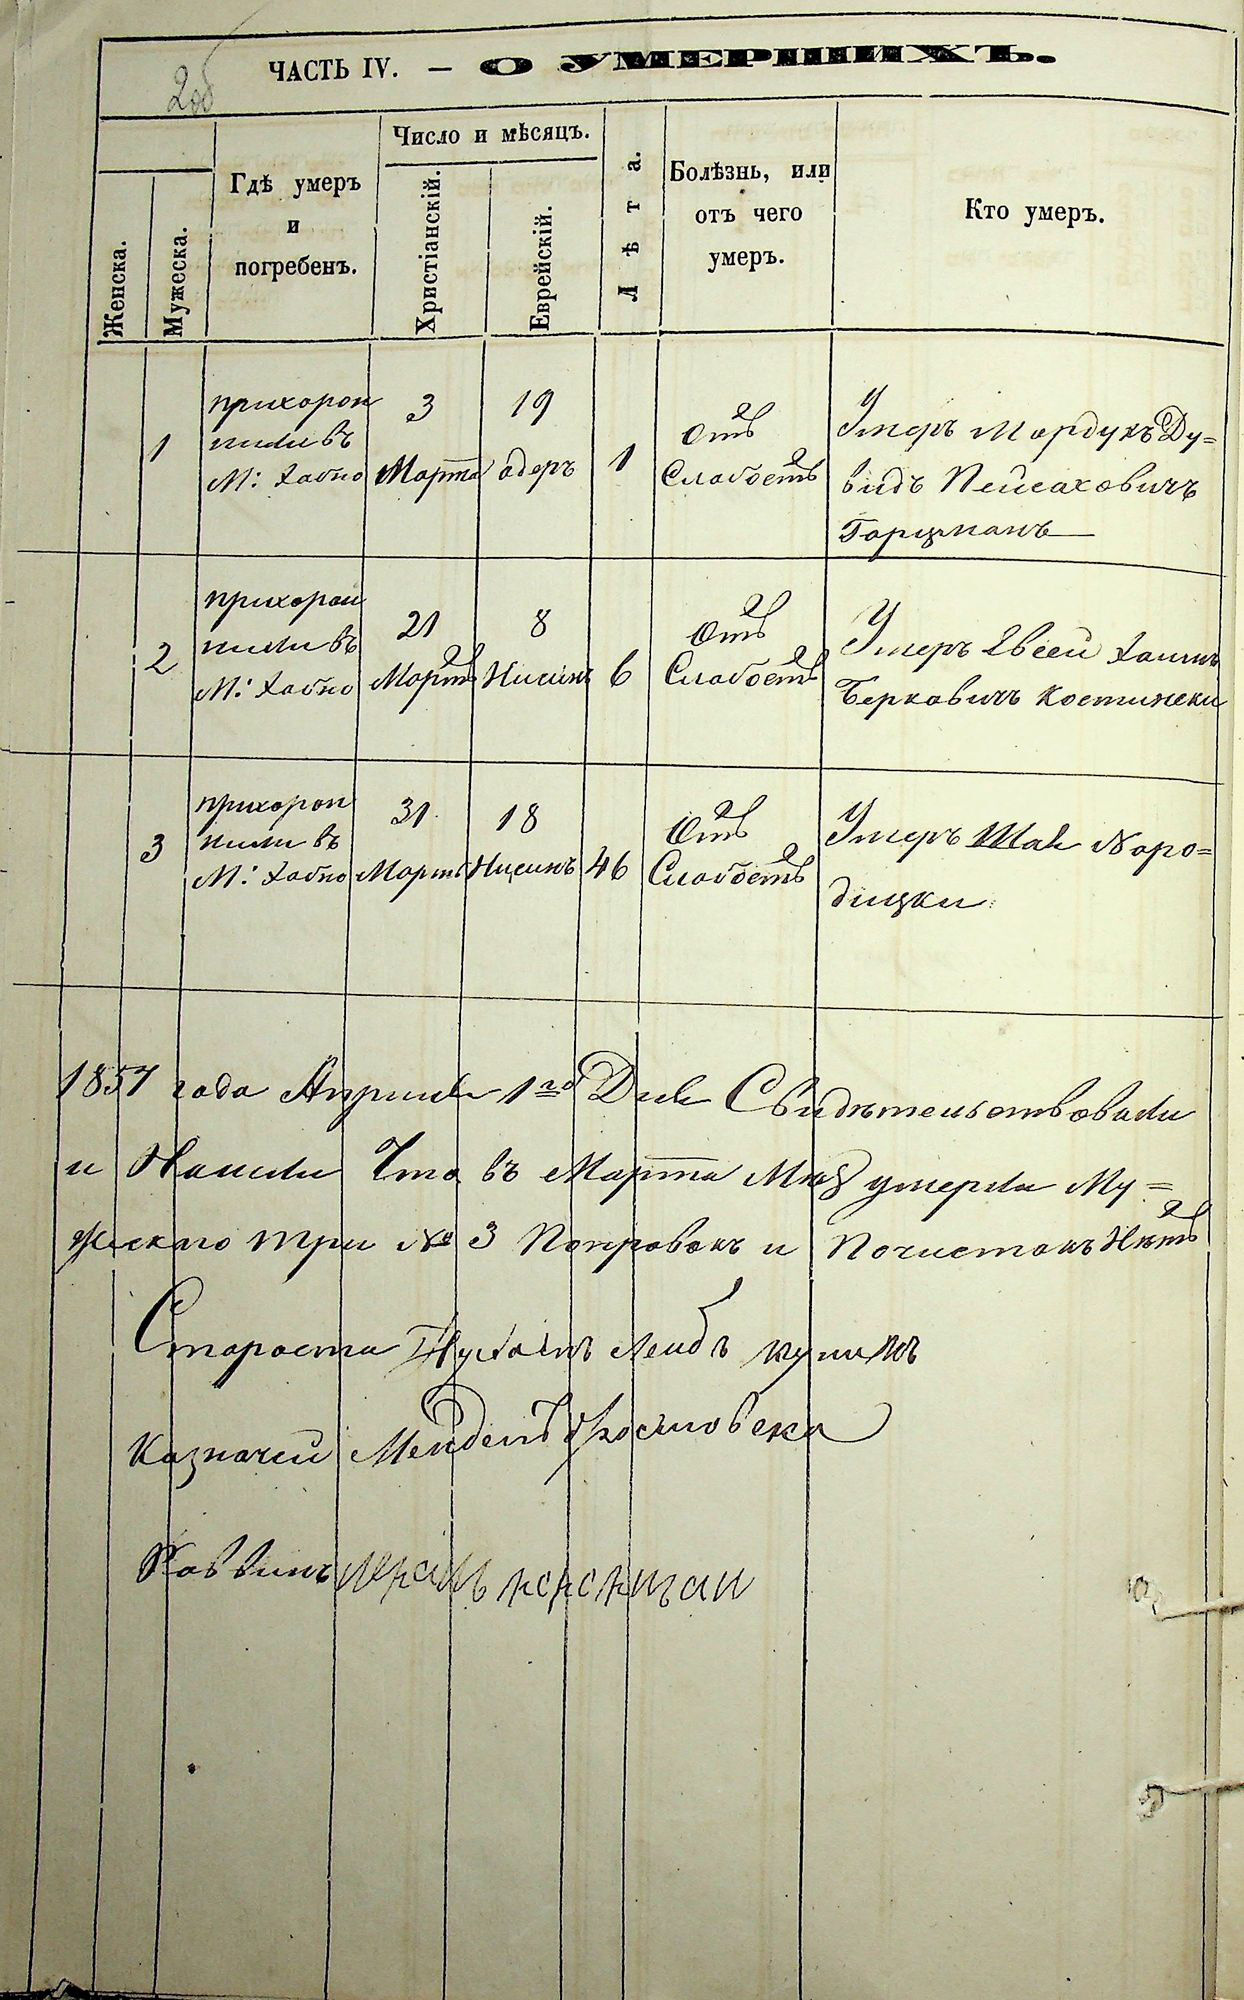 2об
ЧАСТЬ IV. — О УМЕРШИХЪ.
Женска.
Мужеска.
Гдѣ умеръ
и
погребенъ.
Число и мѣсяцъ.
Христіанскій.
Еврейскій.
Лѣта.
Болѣзнь, или
отъ чего
умеръ.
Кто умеръ.
1
прихорон
нили въ
М: Хабно
3
Марта
19
адеръ
1
Отъ
Слабость
Умеръ Мордухъ Ду=
видъ Пейсаховичъ
Гарцманъ
2
прихорон
нили въ
М: Хабно
21
Мартъ
8
Нисинъ
6
Отъ
Слабость
Умеръ Хаимъ
Берковичъ Костински
3
прихорон
нили въ
М: Хабно
31
Мартъ
18
Нисинъ
46
Отъ
Слабость
Умеръ Шае Наро=
дицки
1857 года Априля 1го Дня Свидѣтельствовали
и Нашли Что въ Марта Мцѣ умерла Му=
жескаго три № 3 Поправокъ и Почистокъ Нѣтъ
Староста Лейбъ
Казначей Мендель
Раввинъ